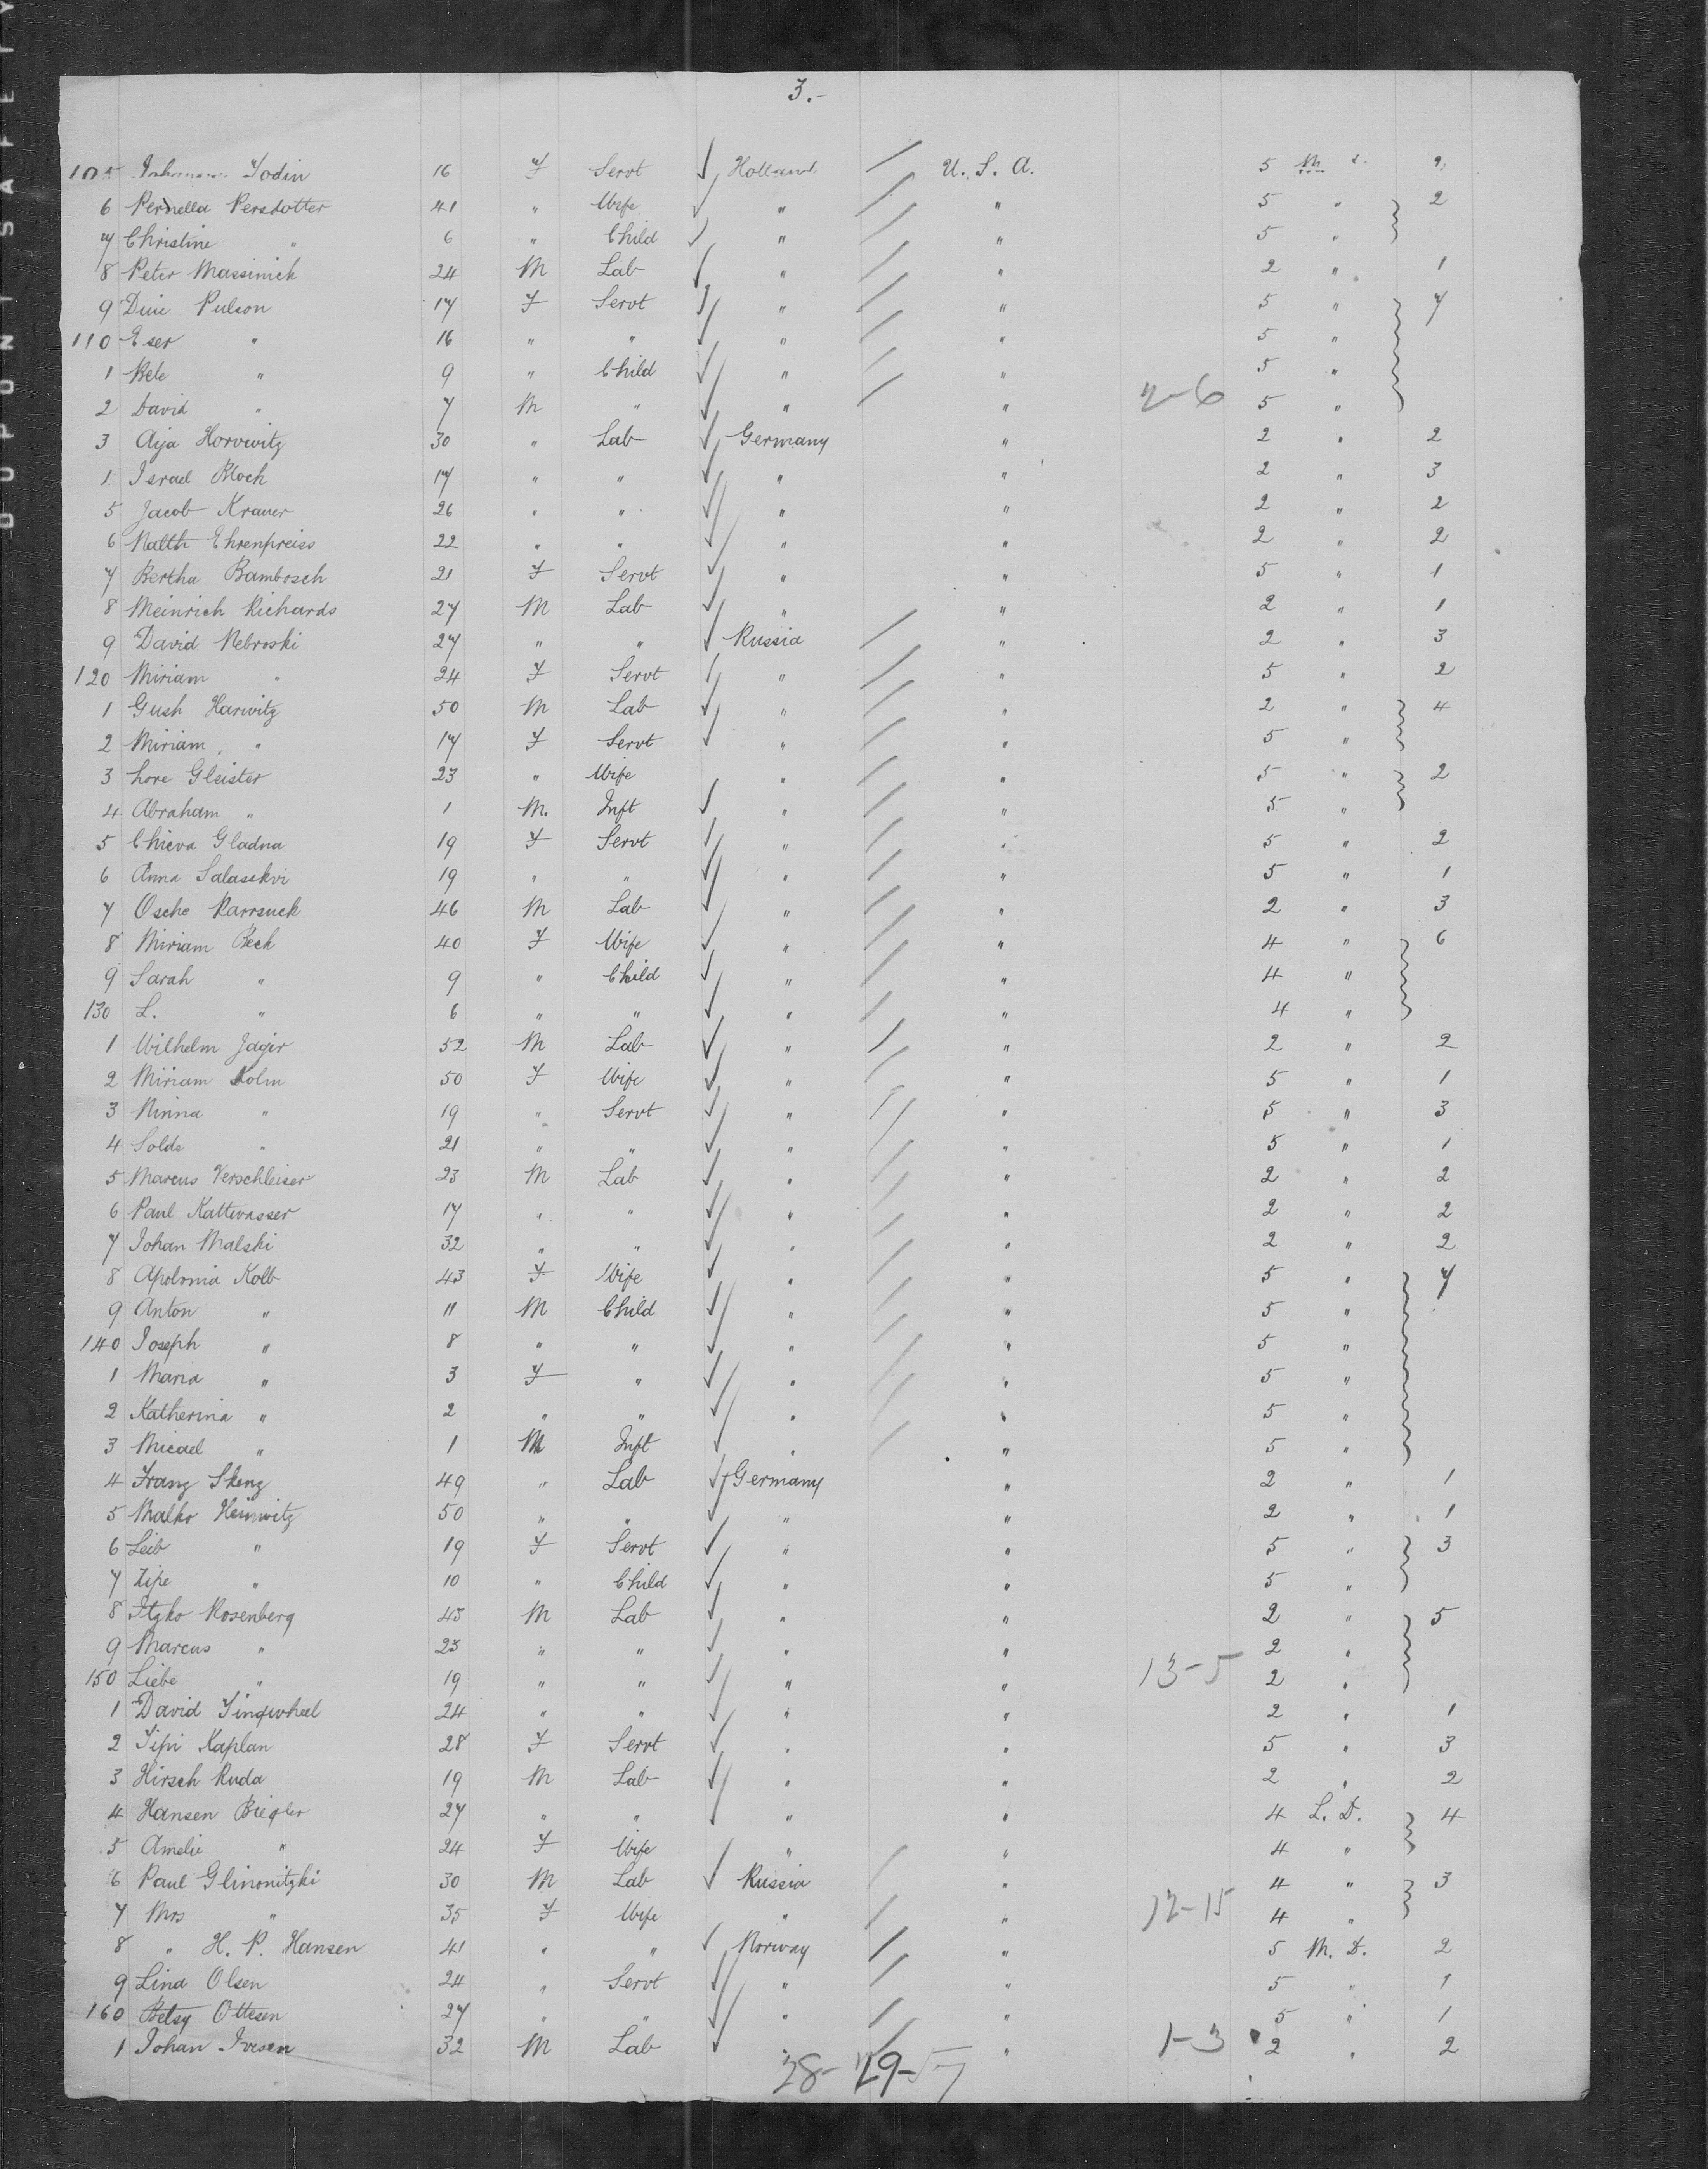 3.-
105 Jodin 16 F Servt Holland U. S. A. 5 M 2
6 Pernella Persdotter 41 " Wife " " 5 " 2
7 Christine " 6 " Child " " 5 "
8 Peter Massinick 24 M Lab " " 2 " 1
9 Dine Pulson 17 F Servt " " 5 " 7
110 Eser " 16 " " " " 5 "
1 Bele " 9 " Child " " 5 "
2 David " 7 M " " " 2-6 5 "
3 Aija Horowitz 30 " Lab Germany " 2 " 2
1 Israel Bloch 17 " " " " 2 " 3
5 Jacob Kraner 26 " " " " 2 " 2
6 Ehrenpreiss 22 " " " " 2 " 2
7 Bertha Bambosch 21 F Servt " " 5 " 1
8 Meinrich Richards 27 M Lab " " 2 " 1
9 David Nebroski 27 " " Russia " 2 " 3
120 Miriam " 24 F Servt " " 5 " 2
1 Gush Harwitz 50 M Lab " " 2 " 4
2 Miriam " 17 F Servt " " 5 "
3 Lore Gleister 23 " Wife " " 5 " 2
4 Abraham " 1 M. Inft " " 5 "
5 Chieva Gladna 19 F Servt " " 5 " 2
6 Anna Salasskvi 19 " " " " 5 " 1
7 Osche Karrsuck 46 M Lab " " 2 " 3
8 Miriam Beck 40 F Wife " " 4 " 6
9 Sarah " 9 " Child " " 4 "
130 L. " 6 " " " " 4 "
1 Wilhelm Jager 52 M Lab " " 2 " 2
2 Miriam Kolm 50 F Wife " " 5 " 1
3 Minna " 19 " Servt " " 5 " 3
4 Solde " 21 " " " " 5 " 1
5 Marcus Verschleiser 23 M Lab " " 2 " 2
6 Paul Kattwasser 17 " " " " 2 " 2
7 Johan Malski 32 " " " " 2 " 2
8 Apolonia Kolb 43 F Wife " " 5 " 7
9 Anton " 11 M Child " " 5 "
140 Joseph " 8 " " " " 5 "
1 Maria " 3 F " " " 5 "
2 Katherina " 2 " " " " 5 "
3 Micael " 1 M Inft " " 5 "
4 Franz Skenz 49 " Lab Germany " 2 " 1
5 Malko Heimwitz 50 " " " " 2 " 1
6 Leib " 19 F Servt " " 5 " 3
7 Zipe " 10 " Child " " 5 "
8 Itzko Rosenberg 45 M Lab " " 2 " 5
9 Marcus " 23 " " " " 2 "
150 Liebe " 19 " " " " 13-5 2 "
1 David 24 " " " " 2 " 1
2 Kaplan 28 F Servt " " 5 " 3
3 Hirsch Ruda 19 M Lab " " 2 " 2
4 Hansen Biegler 27 " " " " 4 L. D. 4
5 Amelie " 24 F Wife " " 4 "
6 Paul Glinonitzki 30 M Lab Russia " 4 " 3
7 Mrs " 35 F Wife " " 12-15 4 "
8 " H. P. Hansen 41 " " Norway " 5 M. D. 2
9 Lina Olsen 24 " Servt " " 5 " 1
160 Betsy Ottesen 27 " " " " 5 " 1
1 Johan Iversen 32 M Lab " " 1-3 2 " 2
28-29-57
DUPONT SAFETY